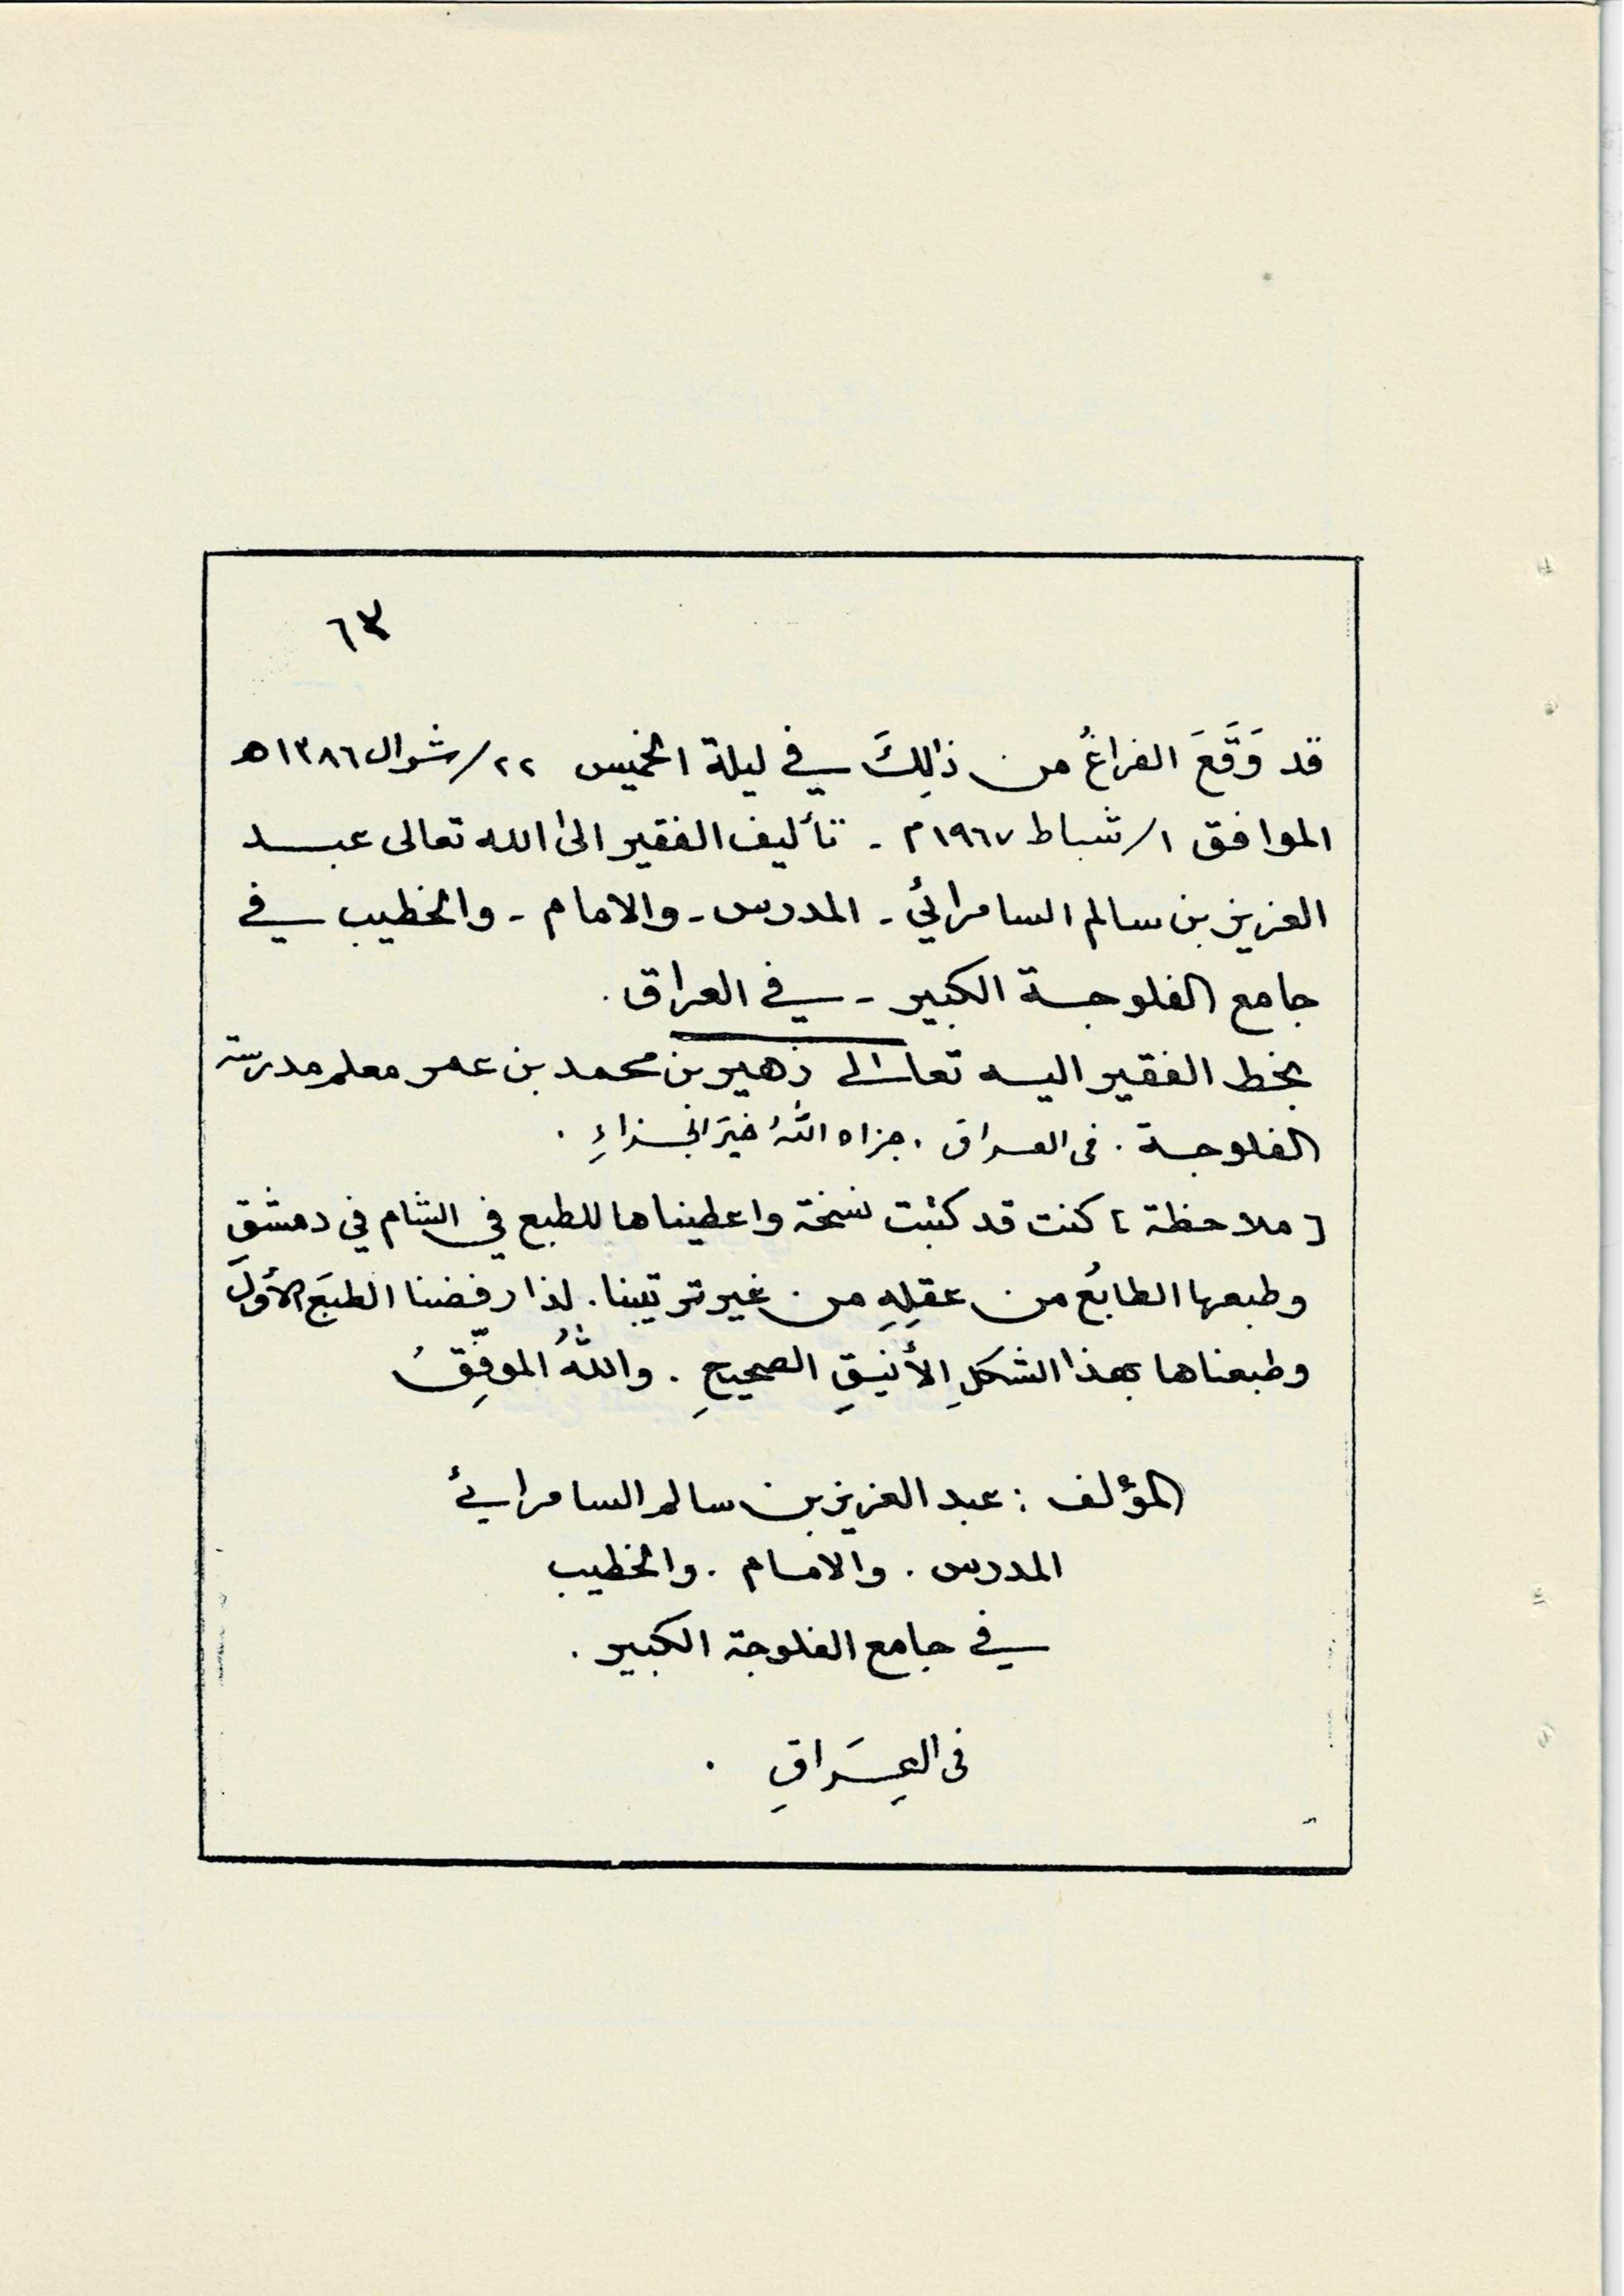 ٦٣
قد وَقَعَ الفراغُ من ذٰلِكَ في ليلة الخميس ٢٢/شوال ١٣٨٦هـ
الموافق ١/شباط ١٩٦٧م ـ تأليف الفقير الى الله تعالى عبد
العزيز بن سالم السامرائي ـ المدرس ـ والامام ـ والخطيب في
جامع الفلوجة الكبير ـ في العراق.
بخط الفقير اليه تعالى زهير بن محمد بن عمر معلم مدرسة
الفلوجة . فى العراق . جزاه اللهُ خيرَ الجزاءِ .
[ملاحظة] كنت قد كتبت نسخة واعطيناها للطبع في الشام في دمشق
وطبعها الطابعُ من عقلِهِ من غير ترتيبنا. لذا رفضنا الطبعَ الأوّلَ
وطبعناها بهذا الشكلِ الأنيقِ الصحيحِ . واللهُ الموفِّقُ
المؤلف : عبد العزيز بن سالم السامرائي
المدرس . والامام . والخطيب
في جامع الفلوجة الكبير .
فى العِرَاقِ .